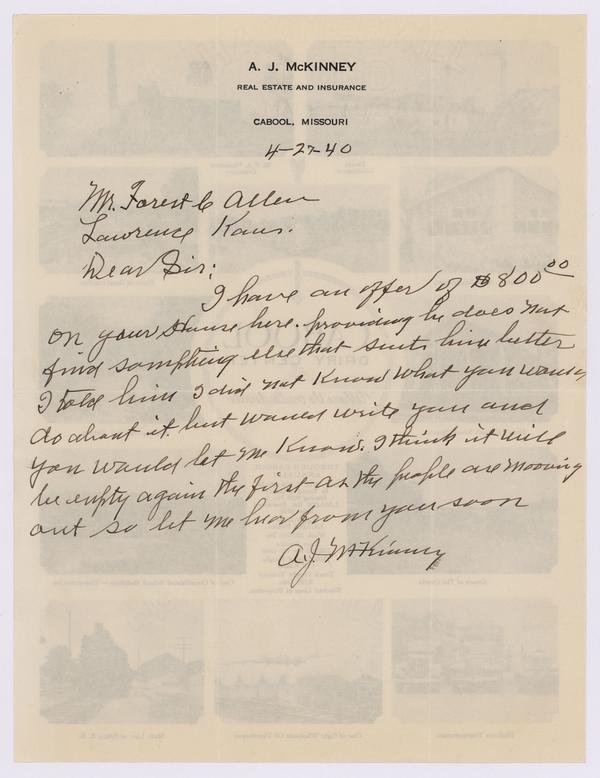 A. J. McKINNEY
REAL ESTATE AND INSURANCE
CABOOL, MISSOURI
4-27-40
Mr. Forest C Allen
Lawrence Kans.
Dear Sir;
I have an offer of $800.00
on your House here. providing he does not
find sompthing else that suits him better
I told him I did not Know what you would
do about it but would write you and
you would let me Know. I think it will
be empty again the first as the people are mooving
out so let me hear from you soon
A.J. McKinney